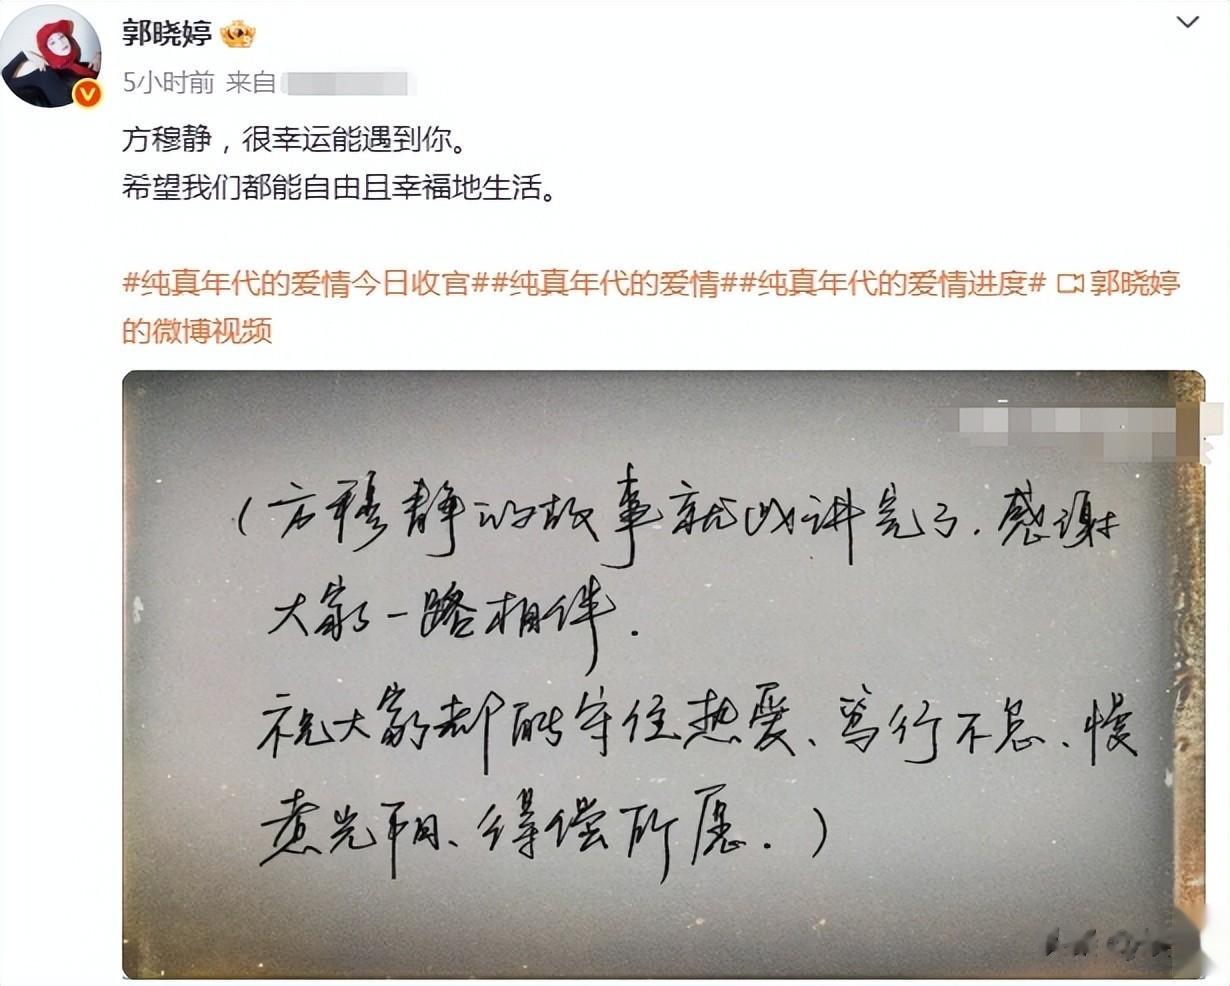 郭晓婷
5小时前 来自
方穆静，很幸运能遇到你。
希望我们都能自由且幸福地生活。
#纯真年代的爱情今日收官##纯真年代的爱情##纯真年代的爱情进度# 郭晓婷
的微博视频
（方穆静的故事就此讲完了.感谢
大家一路相伴.
祝大家都能守住热爱、笃行不怠、慢
煮光阴、得偿所愿.）